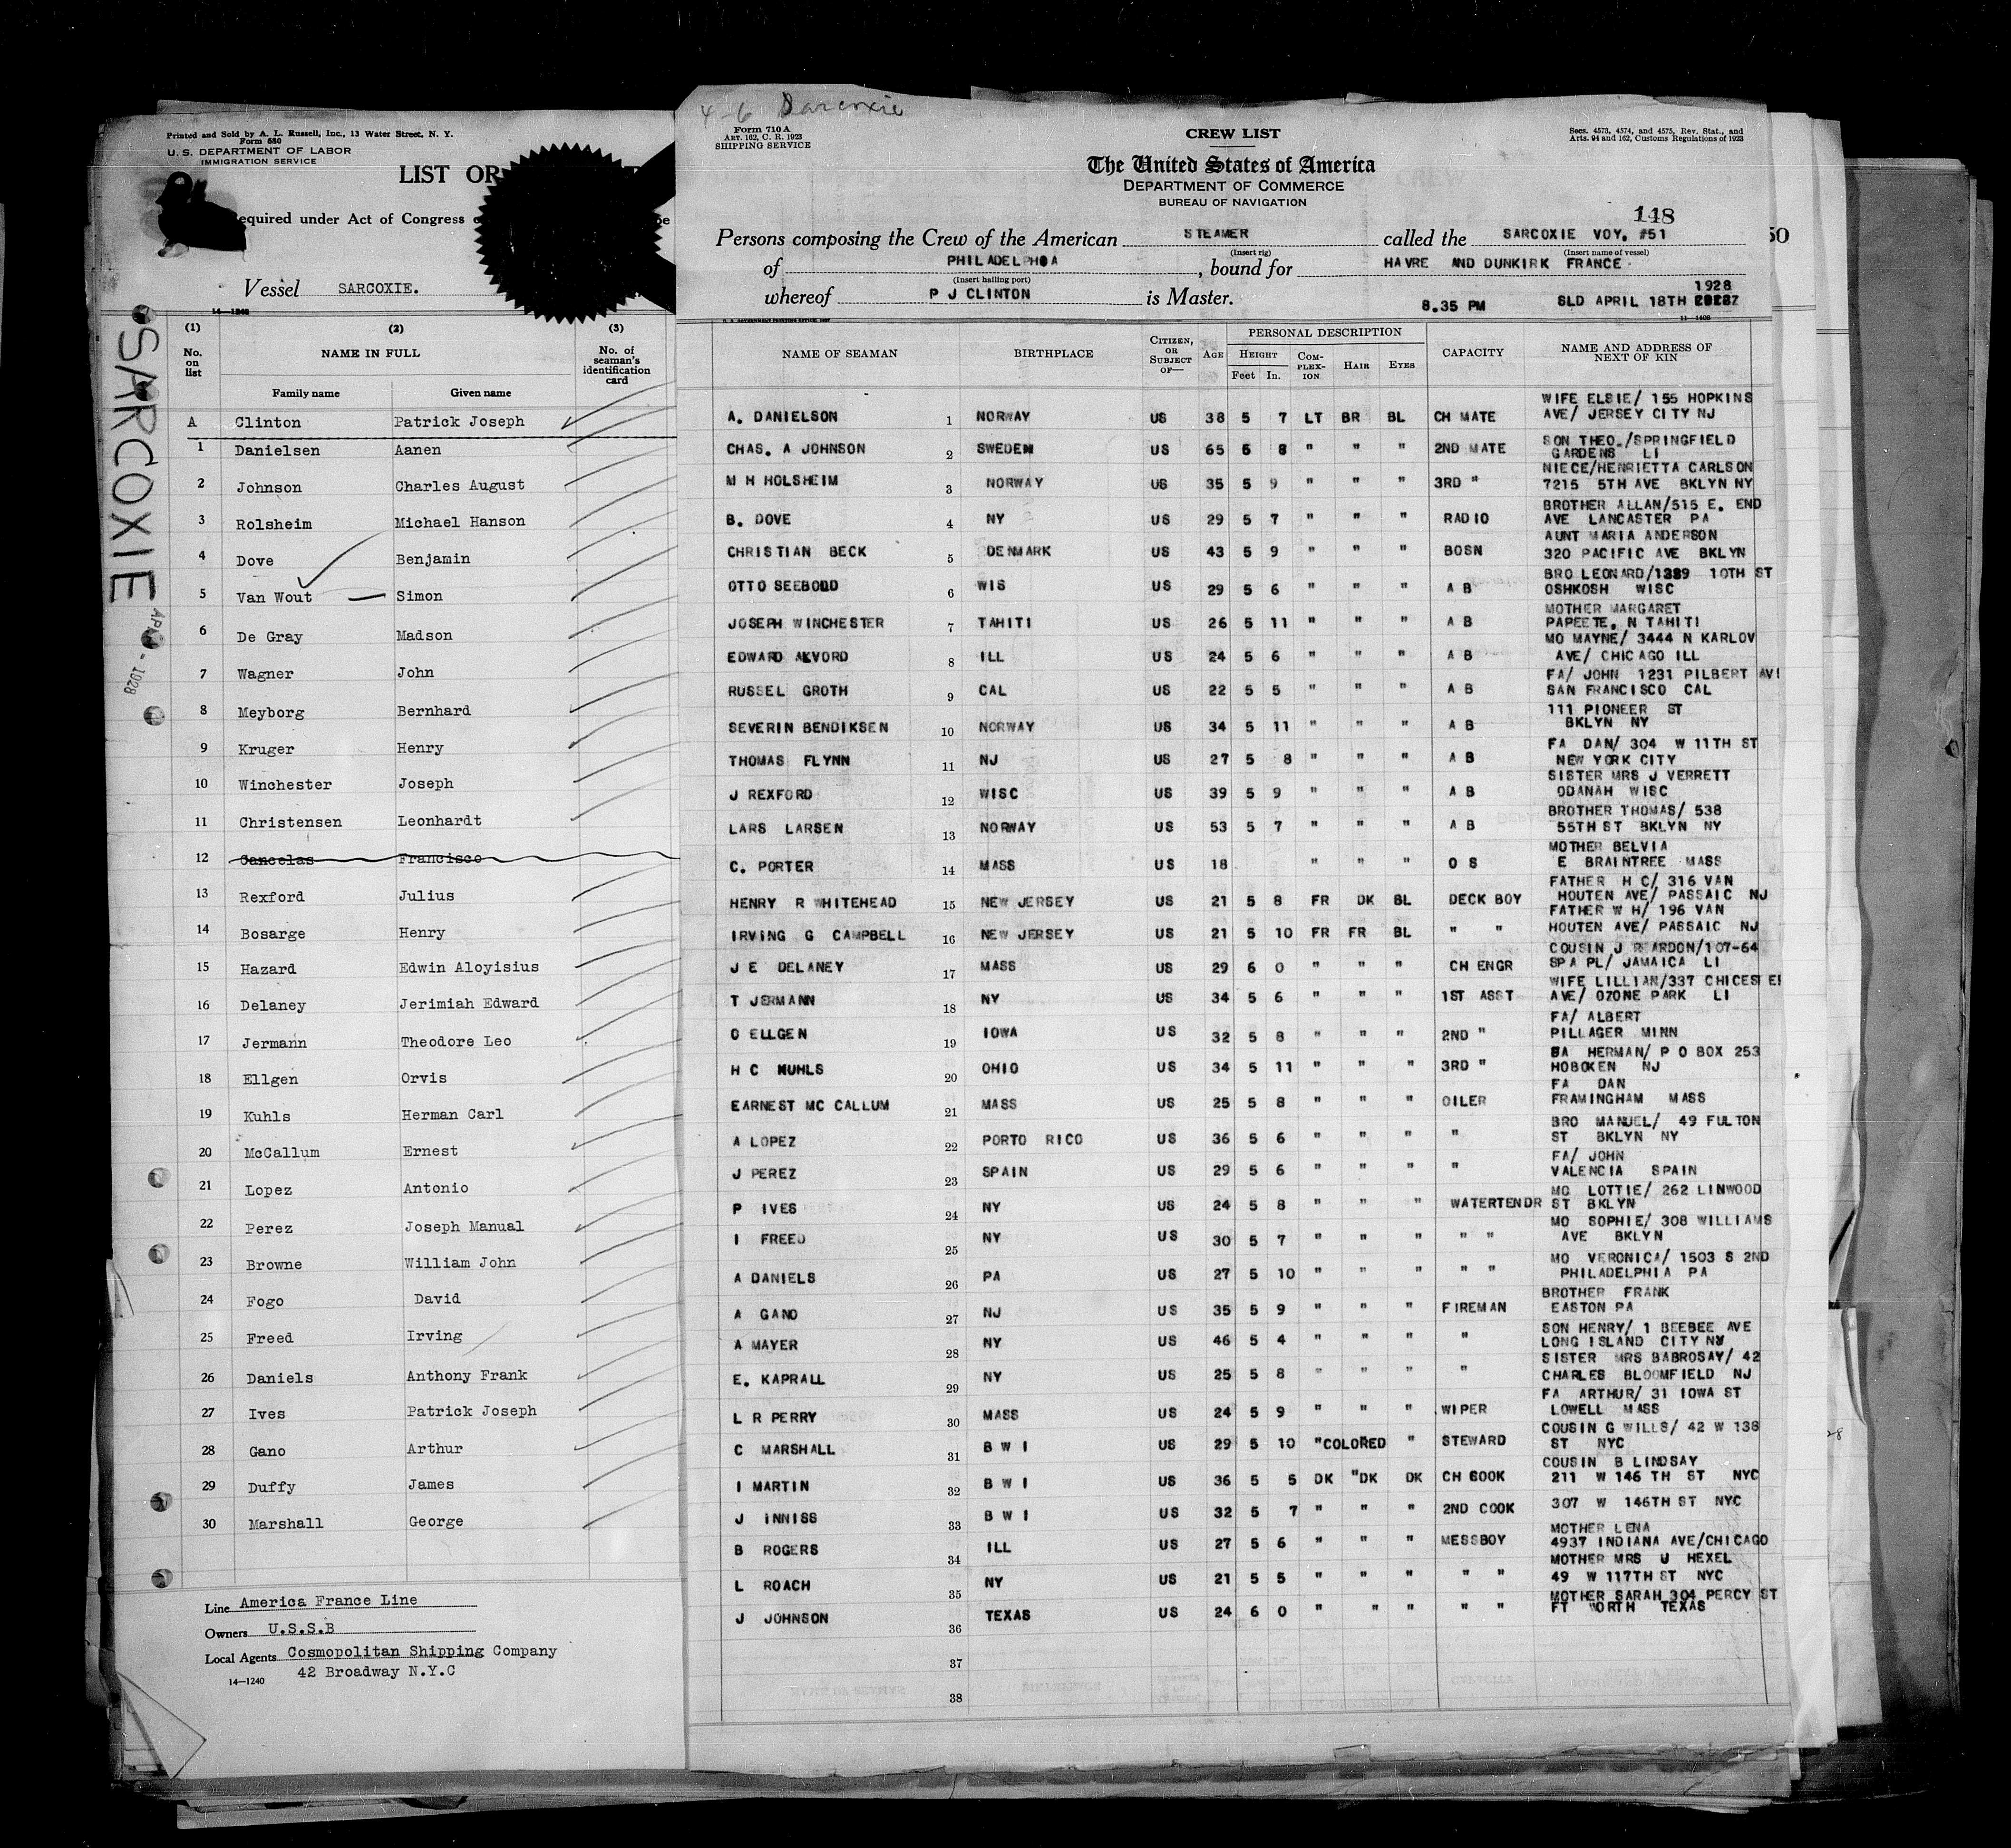 Printed and Sold by A. L. Russell, Inc., 13 Water Street, N. Y.
Form 680
U. S. DEPARTMENT OF LABOR
IMMIGRATION SERVICE
LIST OR
equired under Act of Congress
Vessel SARCOXIE.
SARCOXIE
1928
14—1240
(1) (2) (3)
No. on list NAME IN FULL No. of seaman's identification card
Family name Given name
A Clinton Patrick Joseph
1 Danielsen Aanen
2 Johnson Charles August
3 Rolsheim Michael Hanson
4 Dove Benjamin
5 Van Wout Simon
6 De Gray Madson
7 Wagner John
8 Meyborg Bernhard
9 Kruger Henry
10 Winchester Joseph
11 Christensen Leonhardt
12 Cancelas Francisco
13 Rexford Julius
14 Bosarge Henry
15 Hazard Edwin Aloyisius
16 Delaney Jerimiah Edward
17 Jermann Theodore Leo
18 Ellgen Orvis
19 Kuhls Herman Carl
20 McCallum Ernest
21 Lopez Antonio
22 Perez Joseph Manual
23 Browne William John
24 Fogo David
25 Freed Irving
26 Daniels Anthony Frank
27 Ives Patrick Joseph
28 Gano Arthur
29 Duffy James
30 Marshall George
Line America France Line
Owners U.S.S.B
Local Agents Cosmopolitan Shipping Company
42 Broadway N.Y.C
14—1240
4-6 Sarcoxie
Form 710 A
ART. 162, C. R. 1923
SHIPPING SERVICE
CREW LIST
Secs. 4573, 4574, and 4575, Rev. Stat., and
Arts. 94 and 162, Customs Regulations of 1923
The United States of America
DEPARTMENT OF COMMERCE
BUREAU OF NAVIGATION
148
50
Persons composing the Crew of the American STEAMER called the SARCOXIE VOY. #51
(Insert rig) (Insert name of vessel)
of PHILADELPHOA, bound for HAVRE AND DUNKIRK FRANCE
(Insert hailing port)
1928
whereof P J CLINTON is Master. 8.35 PM SLD APRIL 18TH
11—1408
NAME OF SEAMAN BIRTHPLACE CITIZEN, OR SUBJECT OF— AGE PERSONAL DESCRIPTION CAPACITY NAME AND ADDRESS OF NEXT OF KIN
HEIGHT COM-PLEX-ION HAIR EYES
Feet In.
WIFE ELSIE/ 155 HOPKINS
A. DANIELSON 1 NORWAY US 38 5 7 LT BR BL CH MATE AVE/ JERSEY CITY NJ
SON THEO./SPRINGFIELD
CHAS. A JOHNSON 2 SWEDEN US 65 6 8 " " " 2ND MATE GARDENS LI
NIECE/HENRIETTA CARLSON
M H HOLSHEIM 3 NORWAY US 35 5 9 " " " 3RD " 7215 5TH AVE BKLYN NY
BROTHER ALLAN/515 E. END
B. DOVE 4 NY US 29 5 7 " " " RADIO AVE LANCASTER PA
AUNT MARIA ANDERSON
CHRISTIAN BECK 5 DENMARK US 43 5 9 " " " BOSN 320 PACIFIC AVE BKLYN
BRO LEONARD/1389 10TH ST
OTTO SEEBODD 6 WIS US 29 5 6 " " " A B OSHKOSH WISC
MOTHER MARGARET
JOSEPH WINCHESTER 7 TAHITI US 26 5 11 " " " A B PAPEETE. N TAHITI
MO MAYNE/ 3444 N KARLOV
EDWARD ALVORD 8 ILL US 24 5 6 " " " A B AVE/ CHICAGO ILL
FA/ JOHN 1231 PILBERT AVE
RUSSEL GROTH 9 CAL US 22 5 5 " " " A B SAN FRANCISCO CAL
111 PIONEER ST
SEVERIN BENDIKSEN 10 NORWAY US 34 5 11 " " " A B BKLYN NY
FA DAN/ 304 W 11TH ST
THOMAS FLYNN 11 NJ US 27 5 8 " " " A B NEW YORK CITY
SISTER MRS J VERRETT
J REXFORD 12 WISC US 39 5 9 " " " A B ODANAH WISC
BROTHER THOMAS/ 538
LARS LARSEN 13 NORWAY US 53 5 7 " " " A B 55TH ST BKLYN NY
MOTHER BELVIA
C. PORTER 14 MASS US 18 " " " O S E BRAINTREE MASS
FATHER H C/ 316 VAN
HENRY R WHITEHEAD 15 NEW JERSEY US 21 5 8 FR DK BL DECK BOY HOUTEN AVE/ PASSAIC NJ
FATHER W H/ 196 VAN
IRVING G CAMPBELL 16 NEW JERSEY US 21 5 10 FR FR BL " " HOUTEN AVE/ PASSAIC NJ
COUSIN J REARDON/107-64
J E DELANEY 17 MASS US 29 6 0 " " " CH ENGR SPA PL/ JAMAICA LI
WIFE LILLIAN/337 CHICESTER
T JERMANN 18 NY US 34 5 6 " " " 1ST ASST AVE/ OZONE PARK LI
FA/ ALBERT
O ELLGEN 19 IOWA US 32 5 8 " " " 2ND " PILLAGER MINN
HERMAN/ P O BOX 253
H C KUHLS 20 OHIO US 34 5 11 " " " 3RD " HOBOKEN NJ
FA DAN
EARNEST MC CALLUM 21 MASS US 25 5 8 " " " OILER FRAMINGHAM MASS
BRO MANUEL/ 49 FULTON
A LOPEZ 22 PORTO RICO US 36 5 6 " " " " ST BKLYN NY
FA/ JOHN
J PEREZ 23 SPAIN US 29 5 6 " " " " VALENCIA SPAIN
MO LOTTIE/ 262 LINWOOD
P IVES 24 NY US 24 5 8 " " " WATERTENDR ST BKLYN
MO SOPHIE/ 308 WILLIAMS
I FREED 25 NY US 30 5 7 " " " " " AVE BKLYN
MO VERONICA/ 1503 S 2ND
A DANIELS 26 PA US 27 5 10 " " " " " PHILADELPHIA PA
BROTHER FRANK
A GANO 27 NJ US 35 5 9 " " " FIREMAN EASTON PA
SON HENRY/ 1 BEEBEE AVE
A MAYER 28 NY US 46 5 4 " " " " LONG ISLAND CITY NY
SISTER MRS BABROSAY/ 42
E. KAPRALL 29 NY US 25 5 8 " " " " CHARLES BLOOMFIELD NJ
FA ARTHUR/ 31 IOWA ST
L R PERRY 30 MASS US 24 5 9 " " " WIPER LOWELL MASS
COUSIN G WILLS/ 42 W 138
C MARSHALL 31 B W I US 29 5 10 "COLORED " STEWARD ST NYC
COUSIN B LINDSAY
I MARTIN 32 B W I US 36 5 5 DK "DK DK CH COOK 211 W 146 TH ST NYC
J INNISS 33 B W I US 32 5 7 " " " 2ND COOK 307 W 146TH ST NYC
MOTHER LENA
B ROGERS 34 ILL US 27 5 6 " " " MESSBOY 4937 INDIANA AVE/CHICAGO
MOTHER MRS J HEXEL
L ROACH 35 NY US 21 5 5 " " " " " 49 W 117TH ST NYC
MOTHER SARAH 304 PERCY ST
J JOHNSON 36 TEXAS US 24 6 0 " " " " " FT WORTH TEXAS
37
38